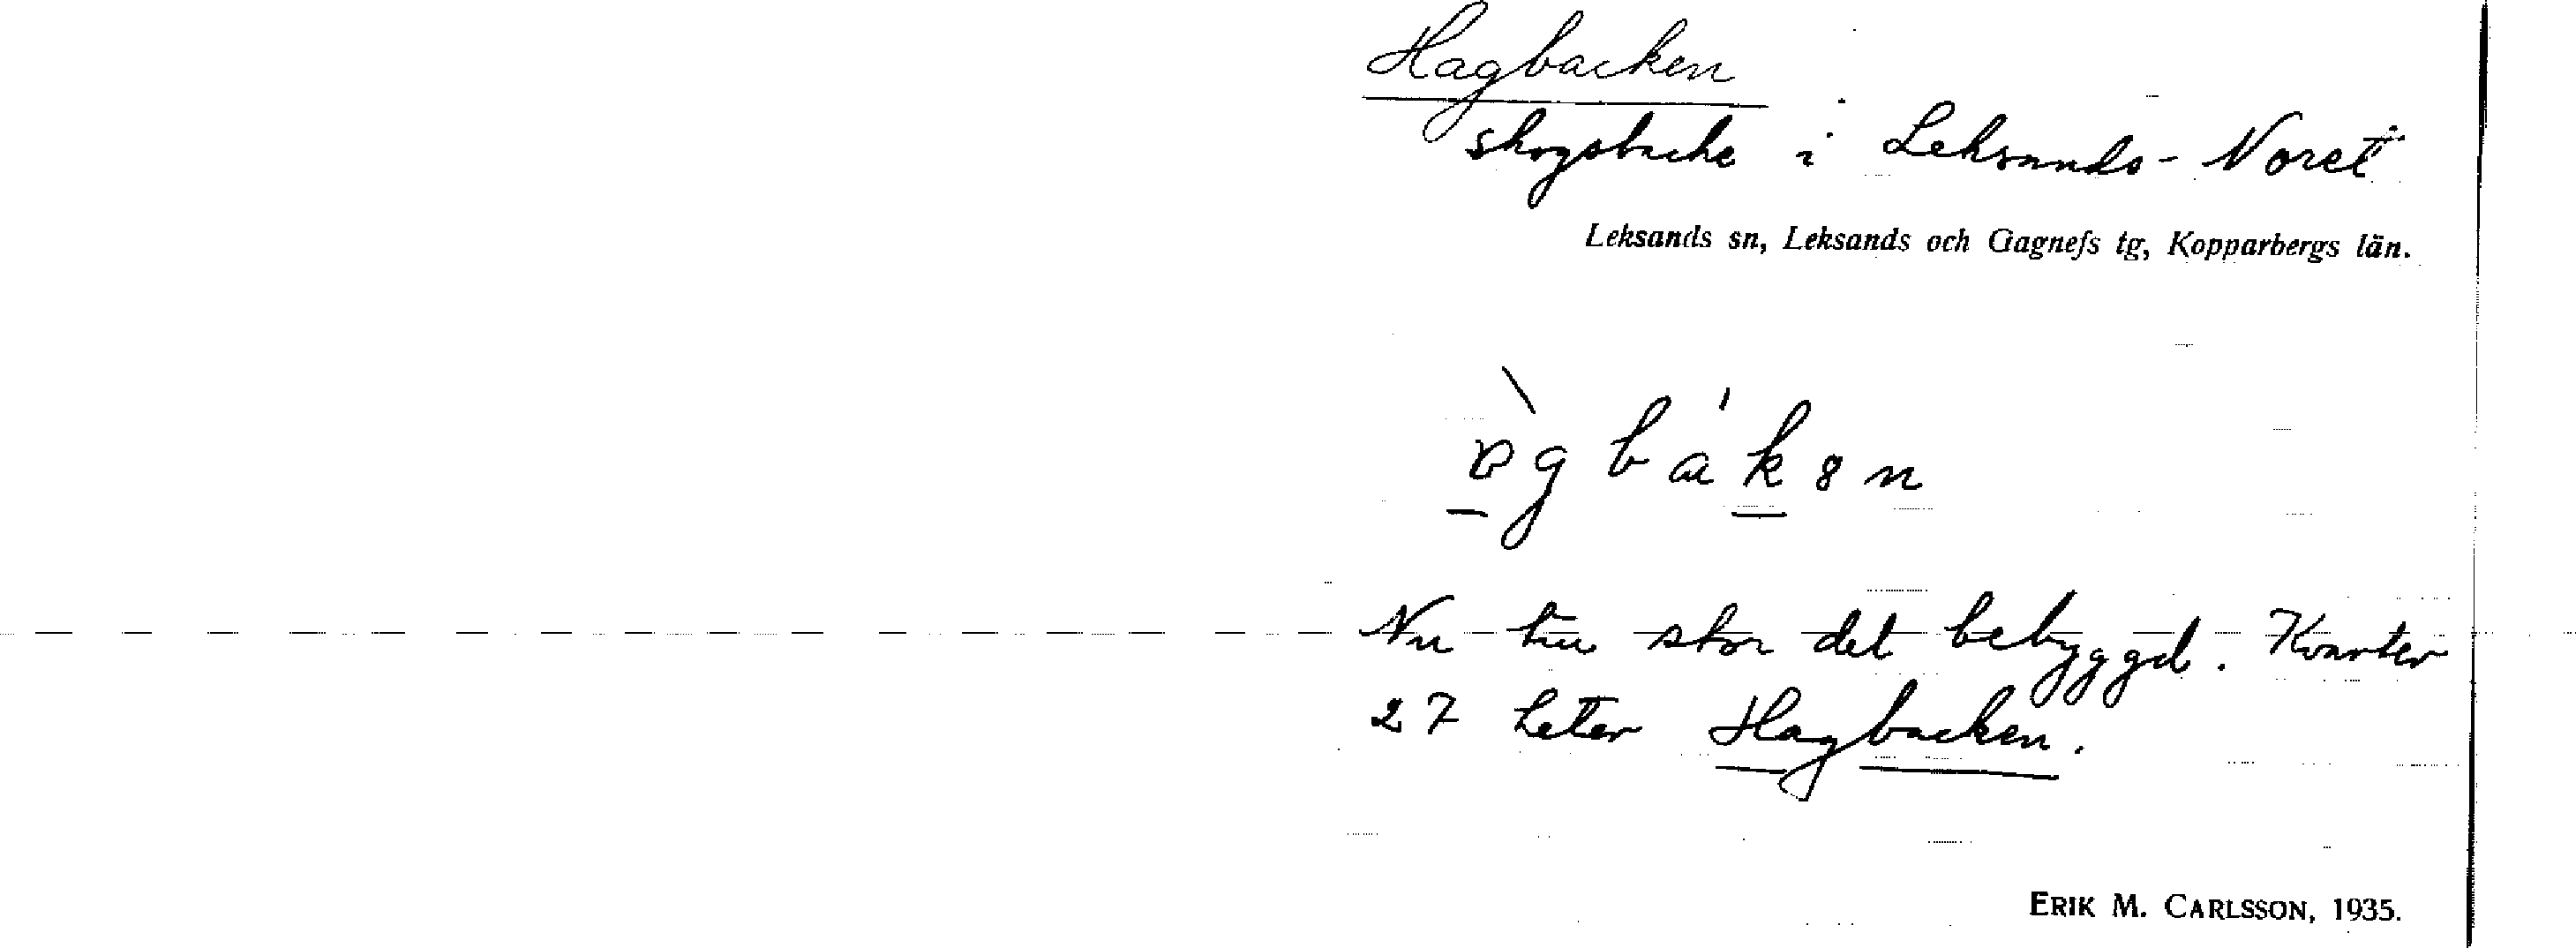 Hagbacken
skogsbacke i Leksands-Noret
Leksands sn, Leksands och Gagnefs tg, Kopparbergs län.
Nu till stor del bebyggd. Kvarter
27 heter Hagbacken.
ERIK M. CARLSSON, 1935.